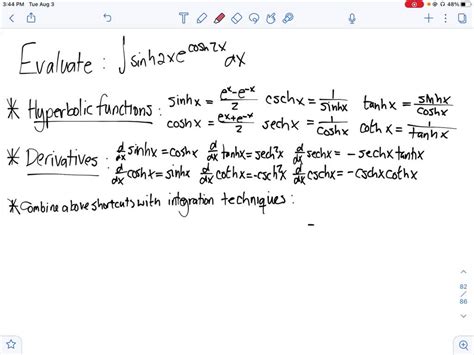 3:44 PM Tue Aug 3 48%
Evaluate: ∫sinh2xe^cosh2x dx
* Hyperbolic functions: sinhx = (e^x-e^-x)/2 cschx = 1/sinhx tanhx = sinhx/coshx
coshx = (e^x+e^-x)/2 sechx = 1/coshx cothx = 1/tanhx
* Derivatives: d/dx sinhx = coshx d/dx tanhx = sech²x d/dx sechx = -sechxtanhx
d/dx coshx = sinhx d/dx cothx = -csch²x d/dx cschx = -cschxcothx
* Combine above shortcuts with integration techniques:
=
82
/
86